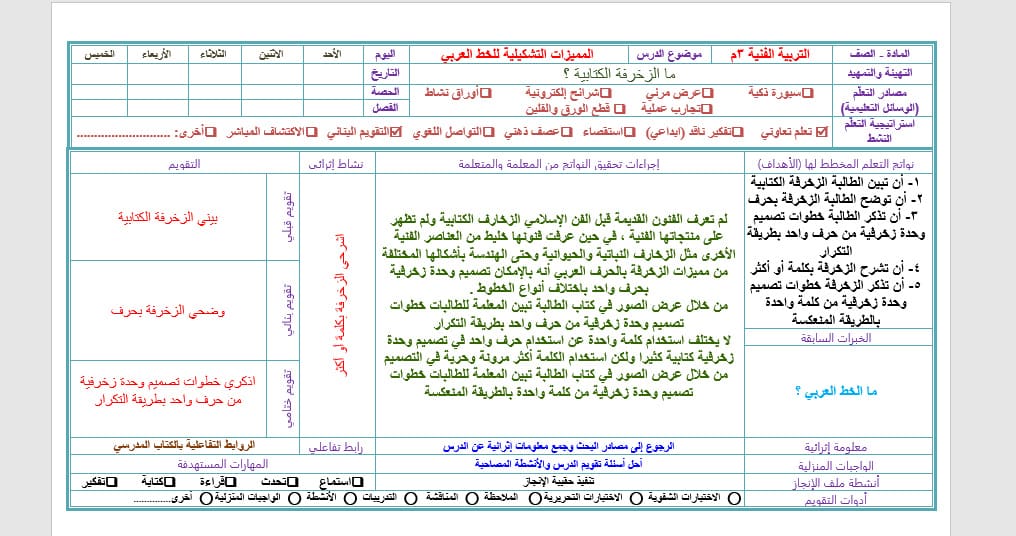 المادة - الصف التربية الفنية ٣م موضوع الدرس المميزات التشكيلية للخط العربي اليوم الأحد الاثنين الثلاثاء الأربعاء الخميس
التهيئة والتمهيد ما الزخرفة الكتابية ؟ التاريخ
مصادر التعلم (الوسائل التعليمية) سبورة ذكية عرض مرئي شرائح إلكترونية أوراق نشاط الحصة
تجارب عملية قطع الورق والفلين الفصل
استراتيجية التعلم النشط تعلم تعاوني تفكير ناقد (ابداعي) استقصاء عصف ذهني التواصل اللغوي التقويم البنائي الاكتشاف المباشر أخرى: ..........................
نواتج التعلم المخطط لها (الأهداف) إجراءات تحقيق النواتج من المعلمة والمتعلمة نشاط إثرائي التقويم
١- أن تبين الطالبة الزخرفة الكتابية
٢- أن توضح الطالبة الزخرفة بحرف
٣- أن تذكر الطالبة خطوات تصميم
وحدة زخرفية من حرف واحد بطريقة
التكرار
٤- أن تشرح الزخرفة بكلمة أو أكثر
٥- أن تذكر الزخرفة خطوات تصميم
وحدة زخرفية من كلمة واحدة
بالطريقة المنعكسة
الخبرات السابقة
ما الخط العربي ؟
لم تعرف الفنون القديمة قبل الفن الإسلامي الزخارف الكتابية ولم تظهر
على منتجاتها الفنية ، في حين عرفت فنونها خليط من العناصر الفنية
الأخرى مثل الزخارف النباتية والحيوانية وحتى الهندسة بأشكالها المختلفة
من مميزات الزخرفة بالحرف العربي أنه بالإمكان تصميم وحدة زخرفية
بحرف واحد باختلاف أنواع الخطوط .
من خلال عرض الصور في كتاب الطالبة تبين المعلمة للطالبات خطوات
تصميم وحدة زخرفية من حرف واحد بطريقة التكرار
لا يختلف استخدام كلمة واحدة عن استخدام حرف واحد في تصميم وحدة
زخرفية كتابية كثيرا ولكن استخدام الكلمة أكثر مرونة وحرية في التصميم
من خلال عرض الصور في كتاب الطالبة تبين المعلمة للطالبات خطوات
تصميم وحدة زخرفية من كلمة واحدة بالطريقة المنعكسة
اشرحي الزخرفة بكلمة أو أكثر
تقويم قبلي
بيني الزخرفة الكتابية
تقويم بنائي
وضحي الزخرفة بحرف
تقويم ختامي
اذكري خطوات تصميم وحدة زخرفية
من حرف واحد بطريقة التكرار
معلومة إثرائية الرجوع إلى مصادر البحث وجمع معلومات إثرائية عن الدرس رابط تفاعلي الروابط التفاعلية بالكتاب المدرسي
الواجبات المنزلية أحل أسئلة تقويم الدرس والأنشطة المصاحبة المهارات المستهدفة
أنشطة ملف الإنجاز تنفيذ حقيبة الإنجاز استماع تحدث قراءة كتابة تفكير
أدوات التقويم الاختبارات الشفوية الاختبارات التحريرية الملاحظة المناقشة التدريبات الأنشطة الواجبات المنزلية أخرى..............